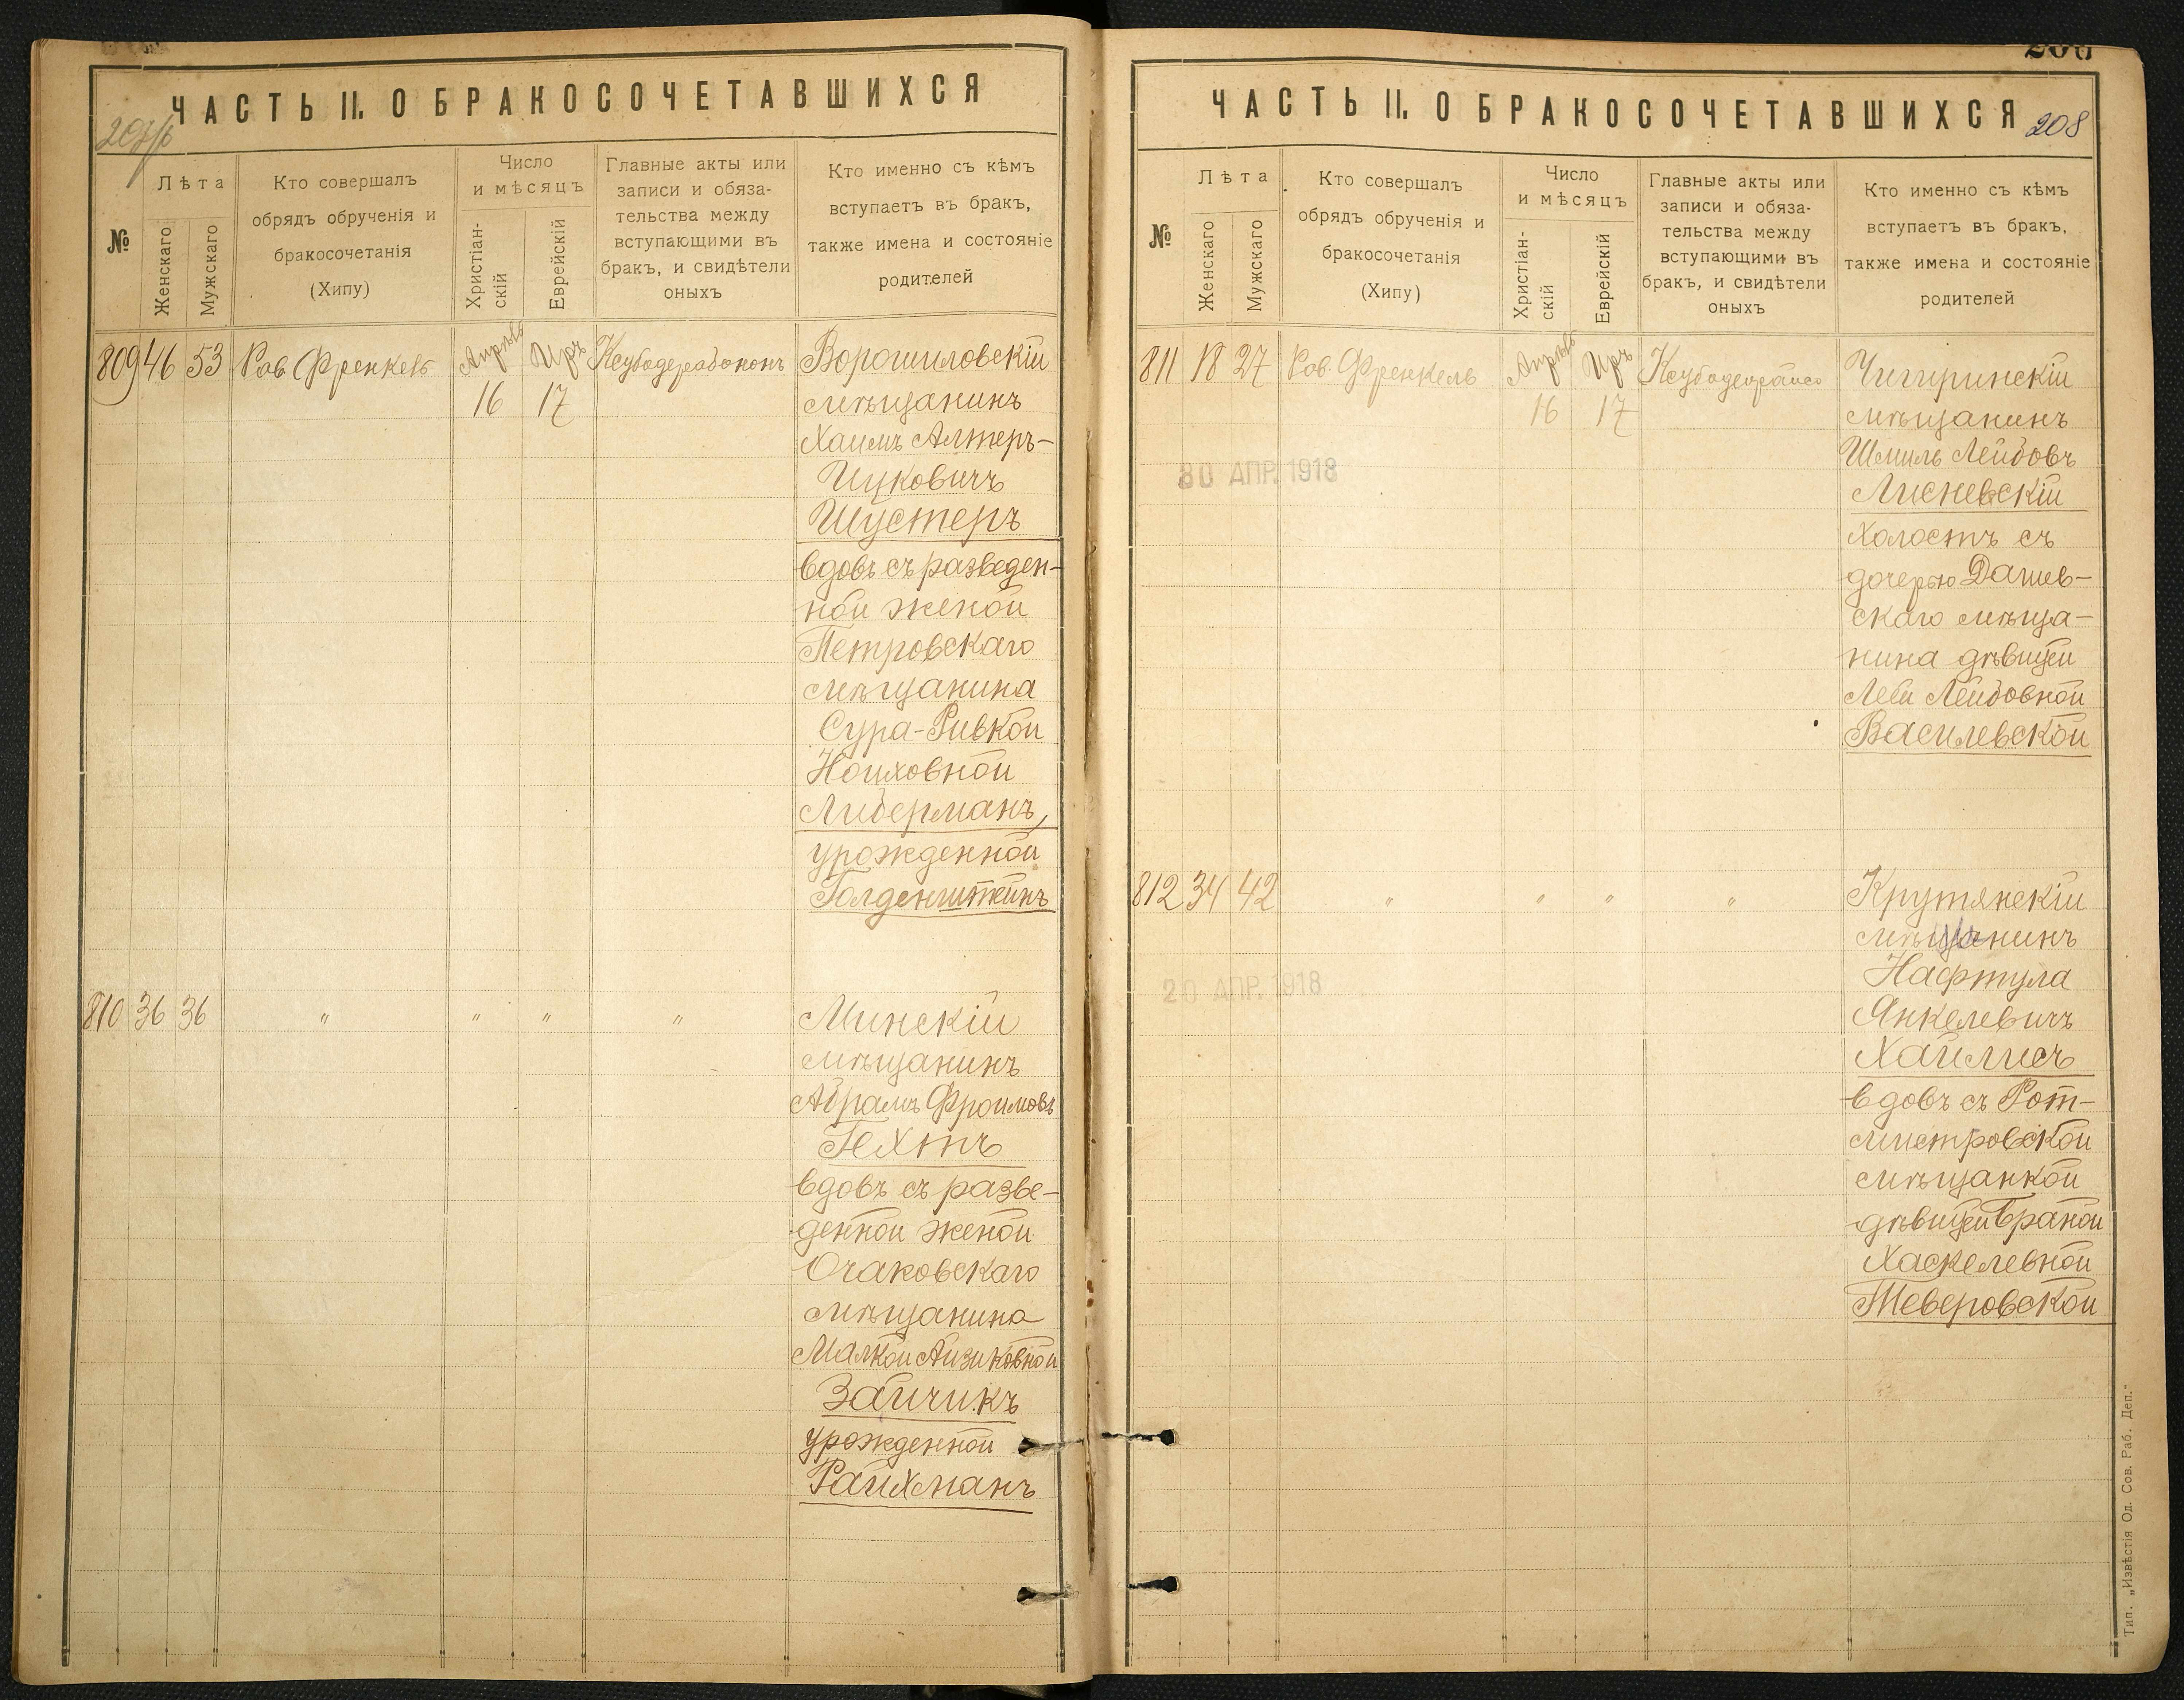 ЧАСТЬ II. О БРАКОСОЧЕТАВШИХСЯ
№
Лѣта
Женскаго
Мужскаго
Кто совершалъ
обрядъ обрученія и
бракосочетанія
(Хипу)
Число
и мѣсяцъ
Христіан-
скій
Еврейскій
Главные акты или
записи и обяза-
тельства между
вступающими въ
бракъ, и свидѣтели
оныхъ
Кто именно съ кѣмъ
вступаетъ въ бракъ,
также имена и состояніе
родителей
809 46 53 Рав. Френкель Апрѣль Иръ
16 17
Ворошиловскій
мѣщанинъ
Хаимъ Алтеръ-
Ицковичъ
Шустеръ
вдовъ съ разведен-
ной женой
Петровскаго
мѣщанина
Сура-Ривкой
Ноиховной
Либерманъ,
урожденной
Голденштейнъ
810 36 36 " " " "
Минскій
мѣщанинъ
Абрамъ Фроимовъ
Гехтъ
вдовъ съ разве-
денной женой
Очаковскаго
мѣщанина
Малкой Айзиковной
Зайчикъ
урожденной
Райхманъ
208
ЧАСТЬ II. О БРАКОСОЧЕТАВШИХСЯ
№
Лѣта
Женскаго
Мужскаго
Кто совершалъ
обрядъ обрученія и
бракосочетанія
(Хипу)
Число
и мѣсяцъ
Христіан-
скій
Еврейскій
Главные акты или
записи и обяза-
тельства между
вступающими въ
бракъ, и свидѣтели
оныхъ
Кто именно съ кѣмъ
вступаетъ въ бракъ,
также имена и состояніе
родителей
811 18 27 Рав. Френкель Апрѣль Иръ
16 17
30 АПР. 1918
Чигиринскій
мѣщанинъ
Шмиль Лейбовъ
Лисневскій
холостъ съ
дочерью Дашев-
скаго мѣща-
нина дѣвицей
Леей Лейбовной
Василевской
812 34 42 " " " "
20 АПР. 1918
Крутянскій
мѣщанинъ
Нафтула
Янкелевичъ
Хаймисъ
вдовъ съ Рот-
мистровской
мѣщанкой
дѣвицей Браной
Хаскелевной
Тверовской
Тип. „Извѣстія Од. Сов. Раб. Деп."